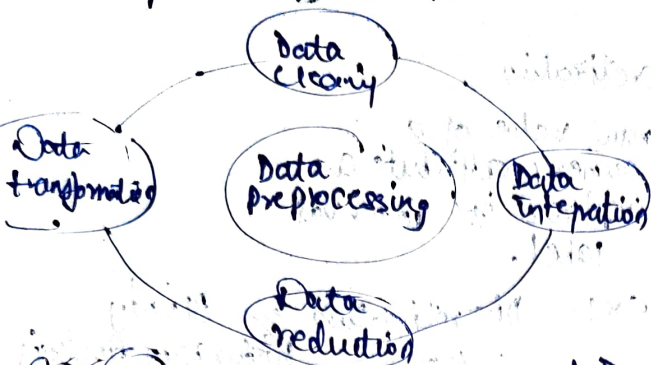 Data
cleaniy
Data
transformatio
Data
Preprocessing
Data
Integration
Data
reduction